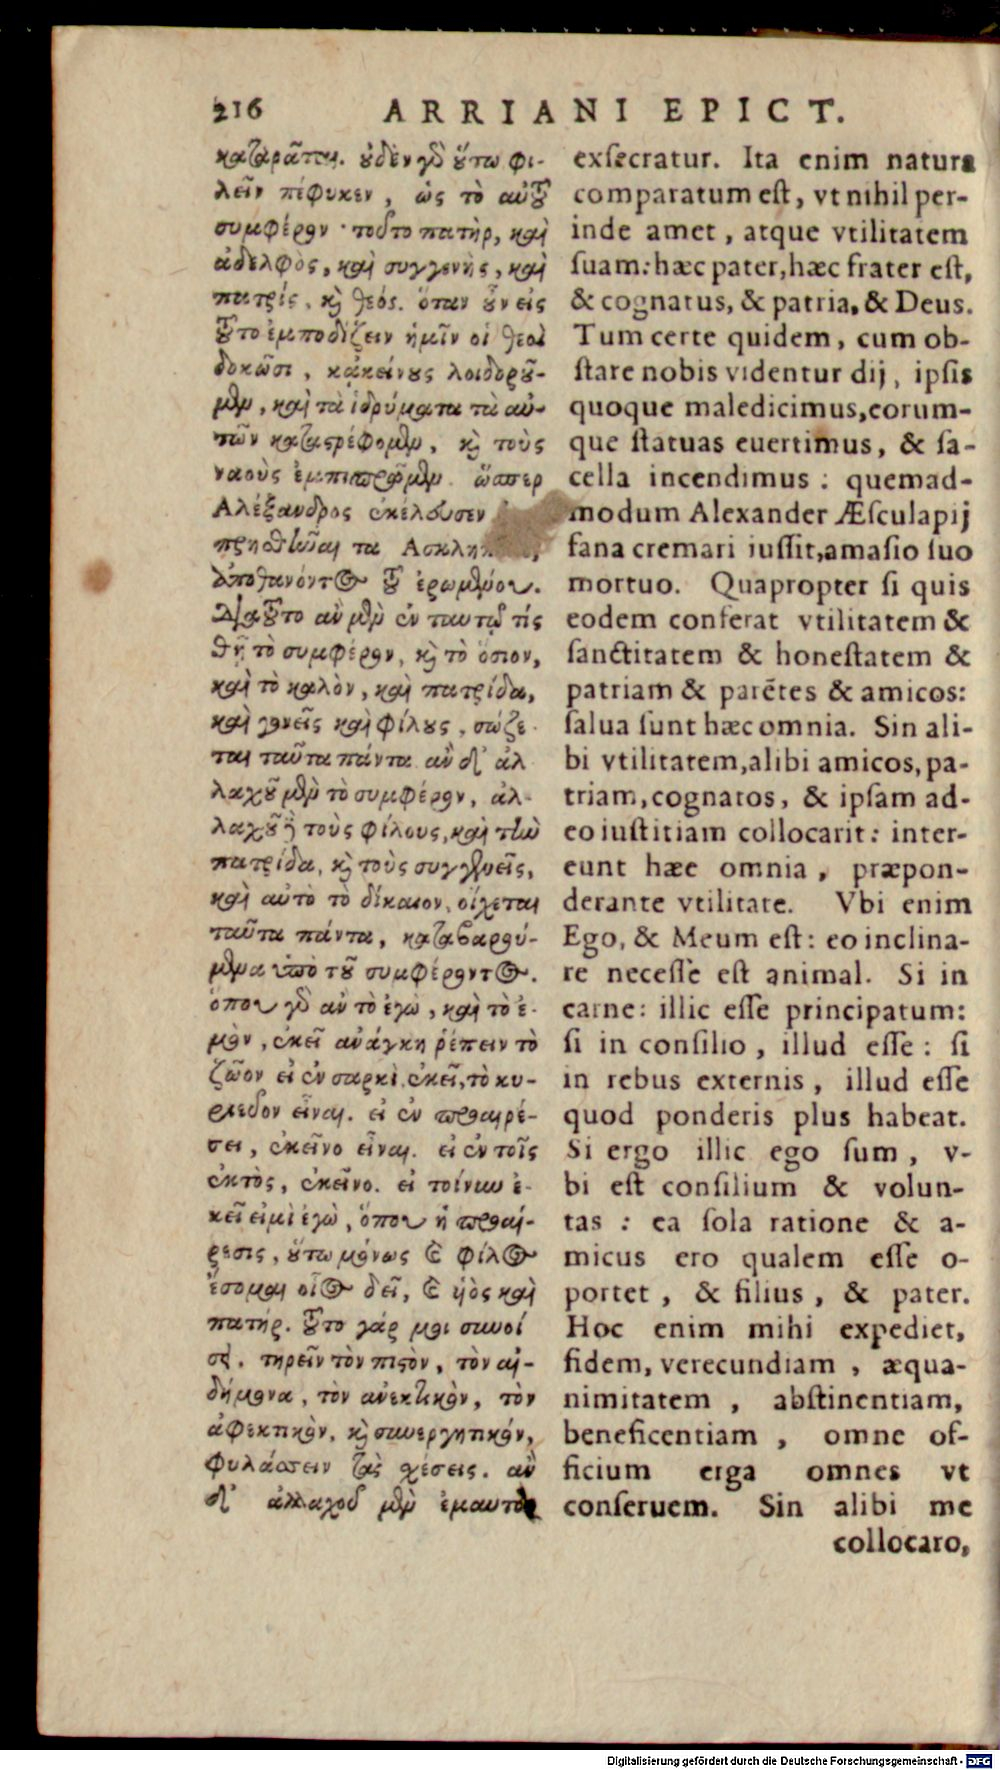 216 ARRIANI EPICT.
καταρᾶται. οὐδὲν γὸ οὕτω φι-
λεῖν πέφυκεν, ὡς τὸ αὐτοῦ
συμφέρον· τοῦτο πατὴρ, καὶ
ἀδελφὸς, καὶ συγγενὴς, καὶ
πατρὶς, κὶ θεός. ὅταν οὖν εἰς
τοῦτο ἐμποδίζειν ἡμῖν οἱ θεοὶ
δοκῶσι, κἀκείνους λοιδοροῦ-
μεν, καὶ τὰ ἱδρύματα τὰ αὐ-
τῶν καταστρέφομεν, κὶ τοὺς
ναοὺς ἐμπιπρῶμεν. ὥσπερ
Αλέξανδρος ἐκέλευσεν
πρησθῆναι τα Ασκλη
ἀποθανόντος τοῦ ἐρωμένου.
Διατοῦτο ἂν μὲν ἐν ταυτῷ τίς
θῇ τὸ συμφέρον, κὶ τὸ ὅσιον,
καὶ τὸ καλὸν, καὶ πατρίδα,
καὶ γονεῖς καὶ φίλους, σώζε-
ται ταῦτα πάντα. ἂν δ' ἀλ-
λαχοῦ μὲν τὸ συμφέρον, ἀλ-
λαχοῦ ἢ τοὺς φίλους, καὶ τὴν
πατρίδα, κὶ τοὺς συγγενεῖς,
καὶ αὐτὸ τὸ δίκαιον, οἴχεται
ταῦτα πάντα, καταβαρού-
μενα ὑπὸ τοῦ συμφέροντος.
ὅπου γὸ ἂν τὸ ἐγὼ, καὶ τὸ ἐ-
μὸν, ἐκεῖ ἀνάγκη ῥέπειν τὸ
ζῶον. εἰ ἐν σαρκὶ, ἐκεῖ, τὸ κυ-
ριεῦον εἶναι. εἰ ἐν προαιρέ-
σει, ἐκεῖνο εἶναι. εἰ ἐν τοῖς
ἐκτὸς, ἐκεῖνο. εἰ τοίνυν ἐ-
κεῖ εἰμὶ ἐγὼ, ὅπου ἡ προαί-
ρεσις, οὕτω μόνως καὶ φίλος
ἔσομαι οἷος δεῖ, καὶ ὑὸς καὶ
πατήρ. τοῦτο γάρ μοι συνοί
σει, τηρεῖν τὸν πιστὸν, τὸν αἰ-
δήμονα, τὸν ἀνεκτικὸν, τὸν
ἀφεκτικὸν, κὶ συνεργητικόν,
φυλάσσειν τὰς σχέσεις. ἂν
δ' ἀλλαχοῦ μὲν ἐμαυτὸν
exsecratur. Ita enim natura
comparatum est, vt nihil per-
inde amet, atque vtilitatem
suam: hæc pater, hæc frater est,
& cognatus, & patria, & Deus.
Tum certe quidem, cum ob-
stare nobis videntur dij, ipsis
quoque maledicimus, eorum-
que statuas euertimus, & sa-
cella incendimus: quemad-
modum Alexander Æsculapij
fana cremari iussit, amasio suo
mortuo. Quapropter si quis
eodem conferat vtilitatem &
sanctitatem & honestatem &
patriam & parẽtes & amicos:
salua sunt hæc omnia. Sin ali-
bi vtilitatem, alibi amicos, pa-
triam, cognatos, & ipsam ad-
eo iustitiam collocarit: inter-
eunt hæe omnia, præpon-
derante vtilitate. Vbi enim
Ego, & Meum est: eo inclina-
re necesse est animal. Si in
carne: illic esse principatum:
si in consilio, illud esse: si
in rebus externis, illud esse
quod ponderis plus habeat.
Si ergo illic ego sum, v-
bi est consilium & volun-
tas: ea sola ratione & a-
micus ero qualem esse o-
portet, & filius, & pater.
Hoc enim mihi expediet,
fidem, verecundiam, æqua-
nimitatem, abstinentiam,
beneficentiam, omne of-
ficium erga omnes vt
conseruem. Sin alibi me
collocaro,
Digitalisierung gefördert durch die Deutsche Forschungsgemeinschaft - DFG